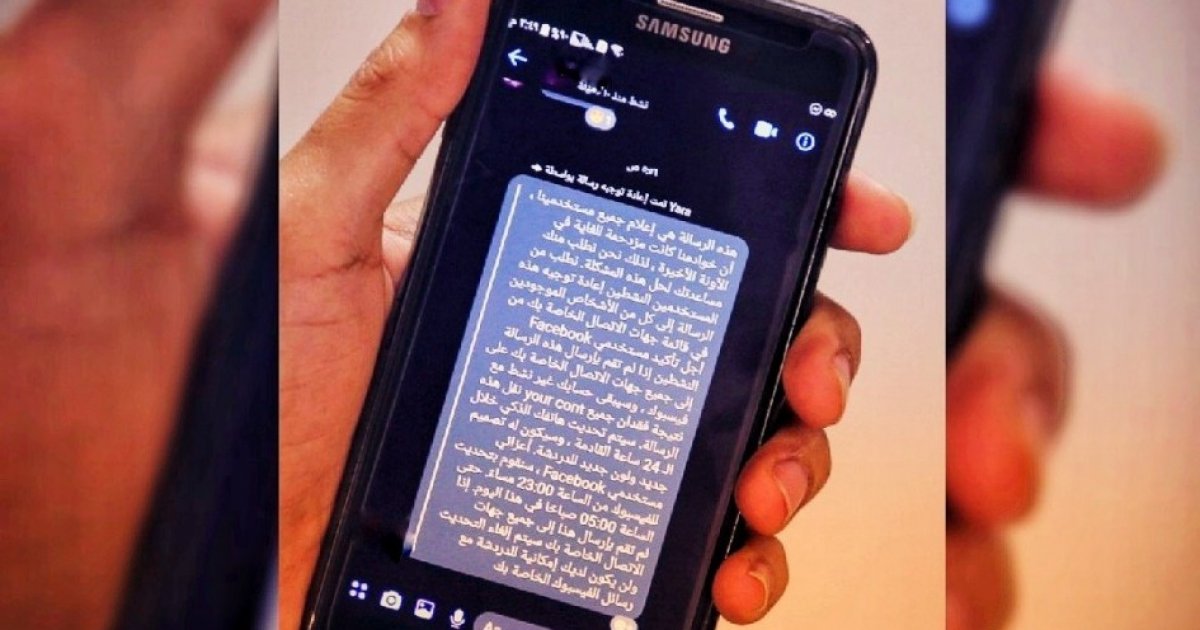 SAMSUNG
٣:٤٩ م
نشط منذ ١٠ دقيقة
تمت إعادة توجيه رسالة بواسطة Yara
هذه الرسالة هي إعلام جميع مستخدمينا ،
أن خوادمنا كانت مزدحمة للغاية في
الآونة الأخيرة ، لذلك نحن نطلب منك
مساعدتك لحل هذه المشكلة. نطلب من
المستخدمين النشطين إعادة توجيه هذه
الرسالة إلى كل من الأشخاص الموجودين
في قائمة جهات الاتصال الخاصة بك من
أجل تأكيد مستخدمي Facebook
النشطين إذا لم تقم بإرسال هذه الرسالة
إلى جميع جهات الاتصال الخاصة بك على
فيسبوك ، وسيبقى حسابك غير نشط مع
نتيجة فقدان جميع your cont نقل هذه
الرسالة. سيتم تحديث هاتفك الذكي خلال
الـ 24 ساعة القادمة ، وسيكون له تصميم
جديد ولون جديد للدردشة. أعزائي
مستخدمي Facebook ، سنقوم بتحديث
للفيسبوك من الساعة 23:00 مساءً حتى
الساعة 05:00 صباحًا في هذا اليوم. إذا
لم تقم بإرسال هذا إلى جميع جهات
الاتصال الخاصة بك سيتم إلغاء التحديث
ولن يكون لديك إمكانية للدردشة مع
رسائل الفيسبوك الخاصة بك
Aa